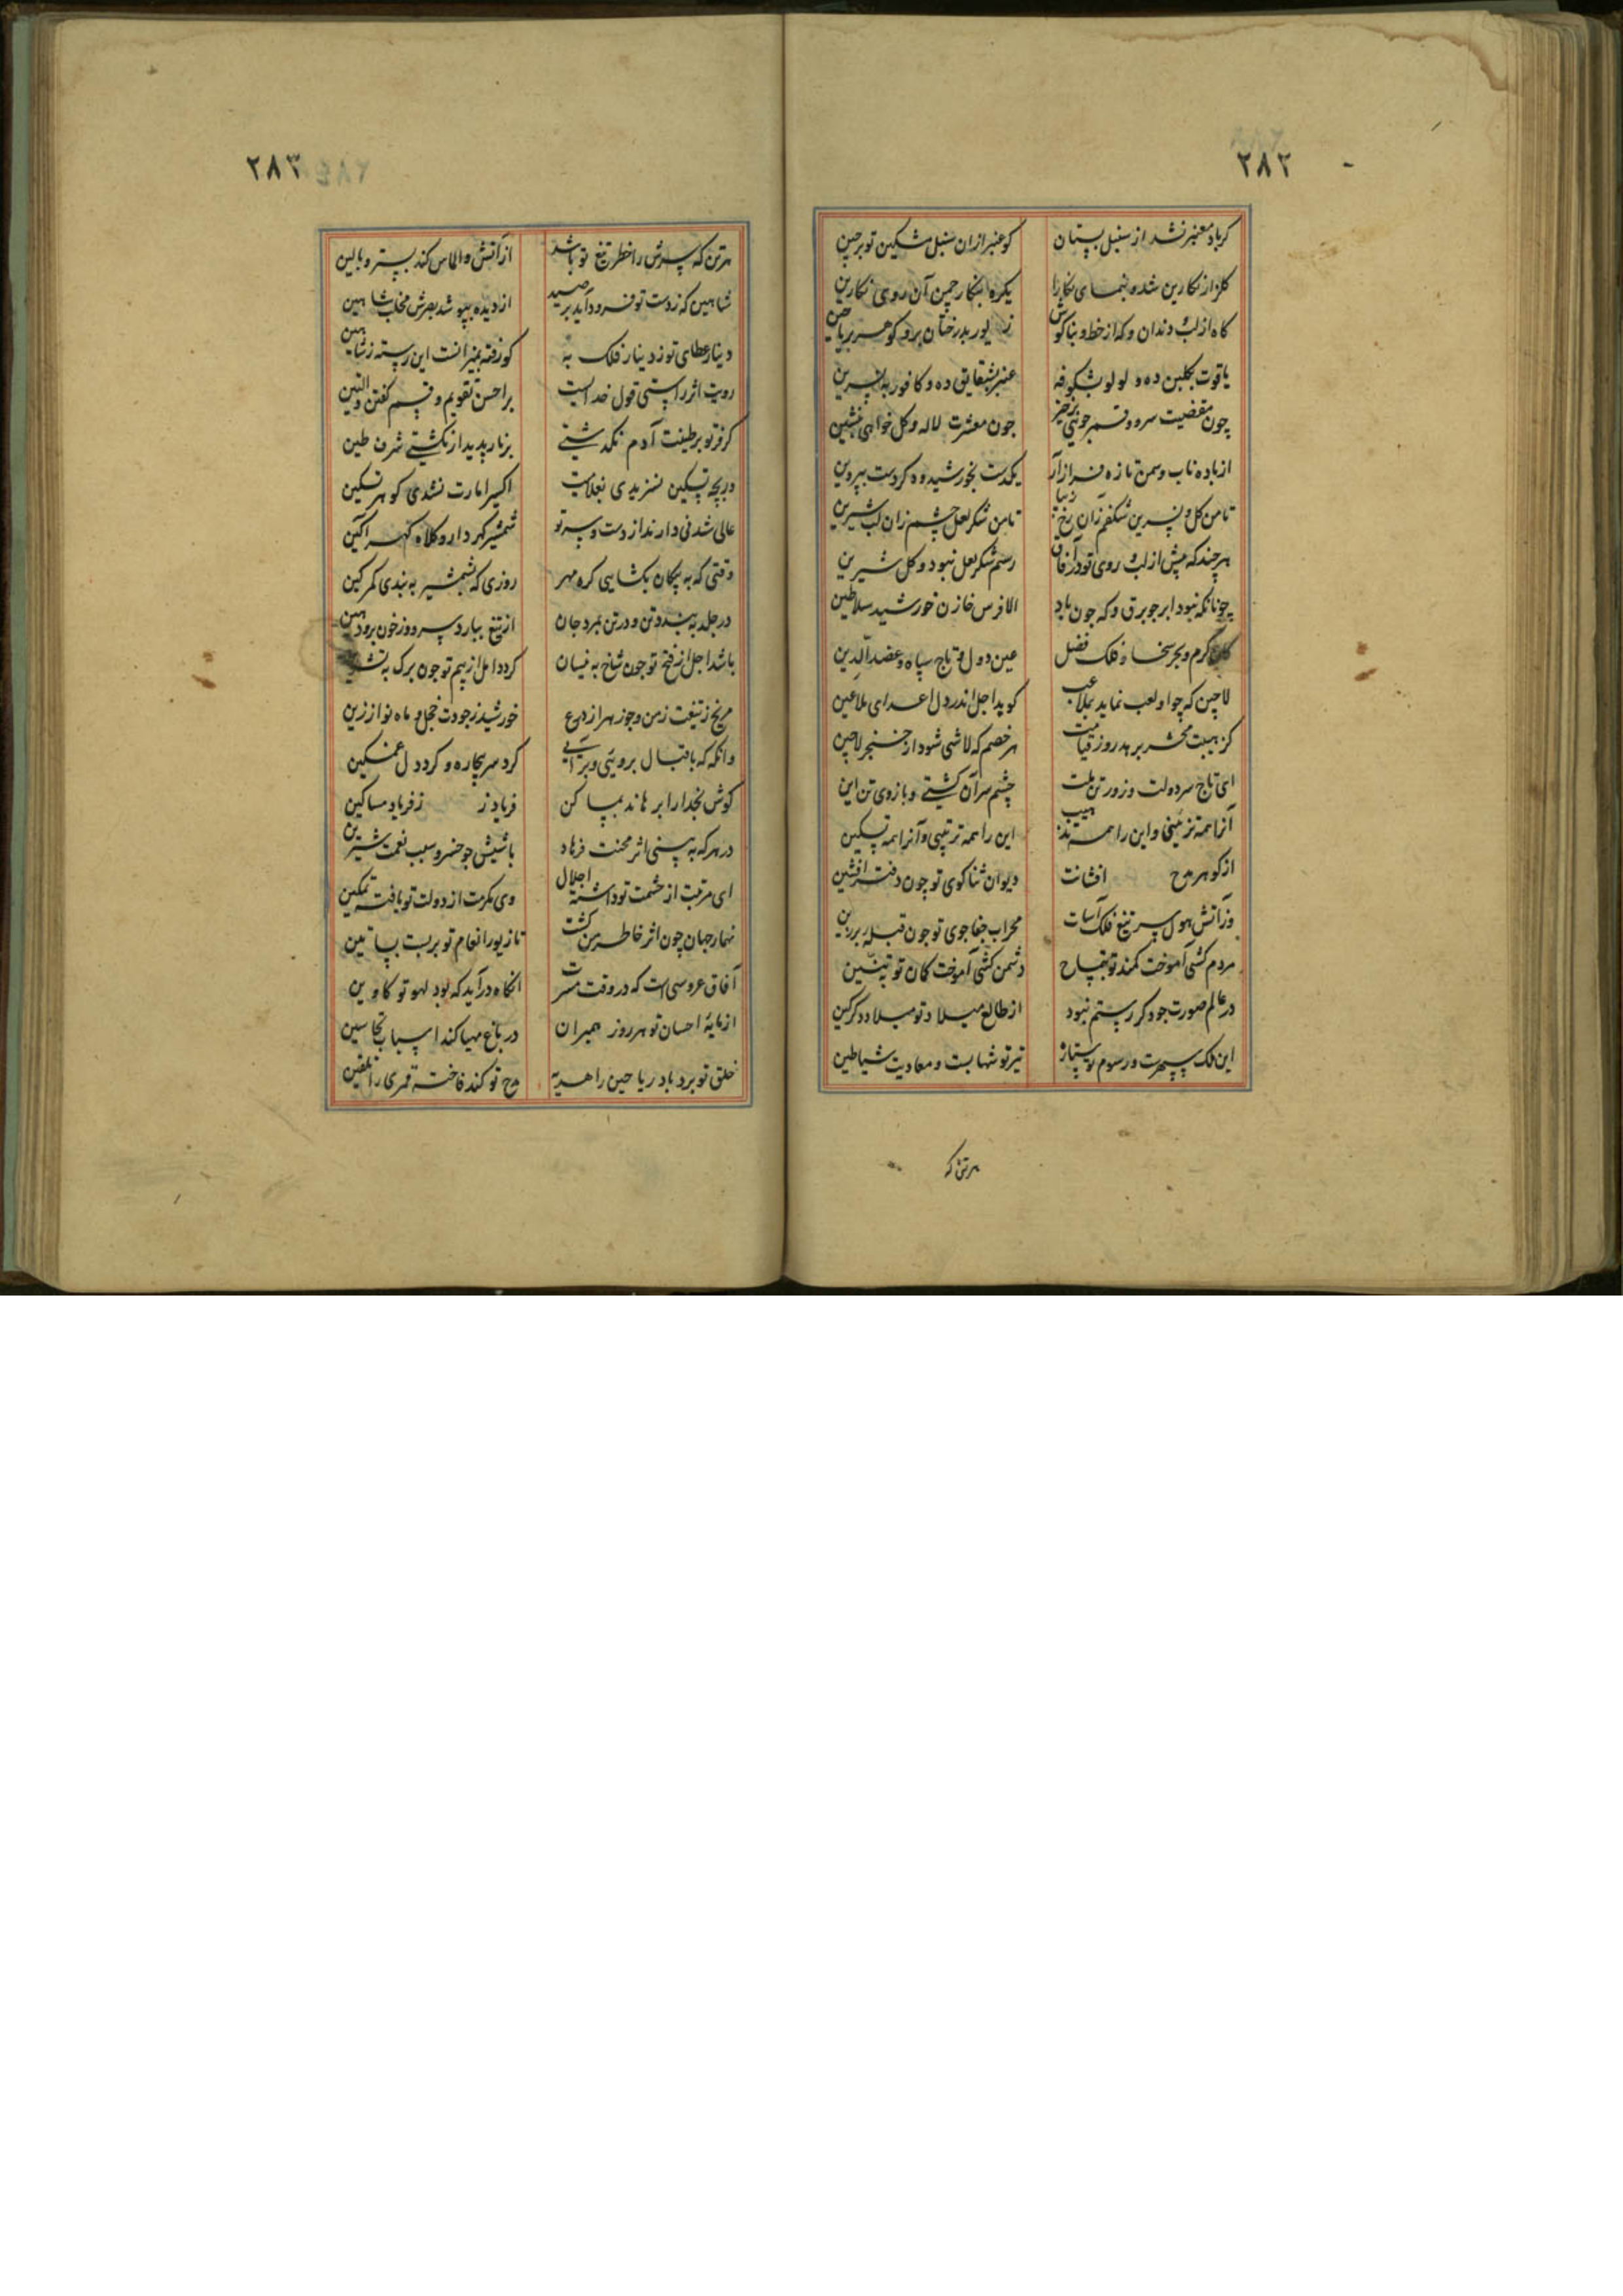 ۲۸۲
کرباد معنبر نشد از سنبل بستان کو عنبر ازان سنبل مشکین تو برچین
کلزار نکارین شد و بنمای نکارا یکره بنکار چمن آن روی نکارین
کاه از لب و دندان و که از خط و بناکوش زیور بدرختان بر و کوهر بریاحین
یاقوت بکلبن ده و لولو بشکوفه عنبر بشقایق ده و کافور بنسرین
چون مقضیت سرو و قمر جوئی برخیز چون معشرت لاله و کل خواهی بنشین
از باده ناب و سمن تازه فراز آر یکدست بخورشید و دکر دست بپروین
تا من کل و نسرین شکفم زان رخ زیبا تا من شکر لعل چشم زان لب شیرین
هر چند که پیش از لب و روی تو در آفاق رسم شکر لعل نبود و کل شیرین
چونانکه نبود ابر جو برق و که جون باد الا فرس خازن خورشید سلاطین
کان کرم و بحر سخا و فلک فضل عین دول و تاج سپاه و عضد الدین
لاچین که چو او لعب نماید بملاعب کوید اجل اندر دل اعدای ملاعین
کز هیبت محشر برهد روز قیامت هر خصم که لاشی شود از خنجر لاچین
ای تاج سر دولت و زور تن ملت چشم سر آن کشتی و بازوی تن این
آنرا همه تزئینی و این را همه تذهیب این را همه ترتیبی و آنرا همه تسکین
از کوهر مدح افشانت دیوان ثناکوی تو چون دفتر افشین
وز آتش هول سر تیغ فلک آسات محراب جفاجوی تو چون قبله برزین
مردم کشی آموخت کمند تو بتمساح دشمن کشی آموخت کمان تو بتنین
در عالم صورت جو دکر رستم نبود از طالع میلاد تو میلاد دکر کین
این ملک سپهرت و رسوم تو ستاره تیر تو شهابست و معادیت شیاطین
هر تن که
۲۸۳
هر تن که سرش را خطر تیغ تو باشد از آتش و الماس کند بستر و بالین
شاهین که ز دست تو فرود آید بر صید از دیده بپوشد بصرش مخلب شاهین
دینار عطای تو ز دینار فلک به کو زفته بمیزانست این رسته ز شاهین
رویت اثر راستی قول خداست بر احسن تقویم و قسم کفتن والتین
کر فر تو بر طینت آدم نکذشتی بر نار پدیدار نکشتی شرف طین
در بچه تسکین نسزیدی بعلامت اکسیر امارت نشدی کوهر تسکین
عالی شد فی دارند از دست و سر تو شمشیر کهردار و کلاه کهر آکین
وقتی که به پیکان بکشایی کره مهر روزی که بشمشیر به بندی کمر کین
در جلد به بندد تن و در تن بمرد جان از تیغ ببارد سر و دوزخون برود هین
باشد اجل از فتح تو جون شاخ به نیسان کردد امل از بیم تو جون برک به تشرین
مریخ ز تیغت زمن و جوزهر از درع خورشید ز جودت خجل و ماه نو از زین
وانکه که باقبال بروئی و برائی کرد سر بیچاره و کرد دل غمکین
کوش نخدا را برهاند بمساکن فریاد ز ز فریاد مساکین
در هر که به بینی اثر محنت فرهاد باشیش جو خسرو سبب نعمت شیرین
ای مرتبت از حشمت تو داشته اجلال وی مکرمت از دولت تو یافته تمکین
نهار جهان چون اثر خاطر من کشت تا زیور انعام تو بربست بساتین
آفاق عروسی است که در وقت مسرت آنکاه درآید که بود لهو تو کاوین
از مایه احسان تو هر روز همیران در باغ مهیا کند اسباب نجاسین
خلق تو برد باد ریاحین را هدیه مدح تو کند فاخته قمری را تلقین